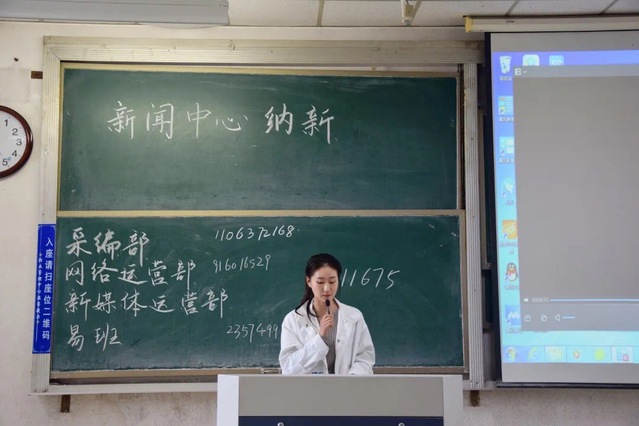 新闻中心 纳新
采编部 1106372168
网络运营部 916016529
新媒体运营部 11675
易班 2357499
入座请扫座位二维码
1
2
3
4
5